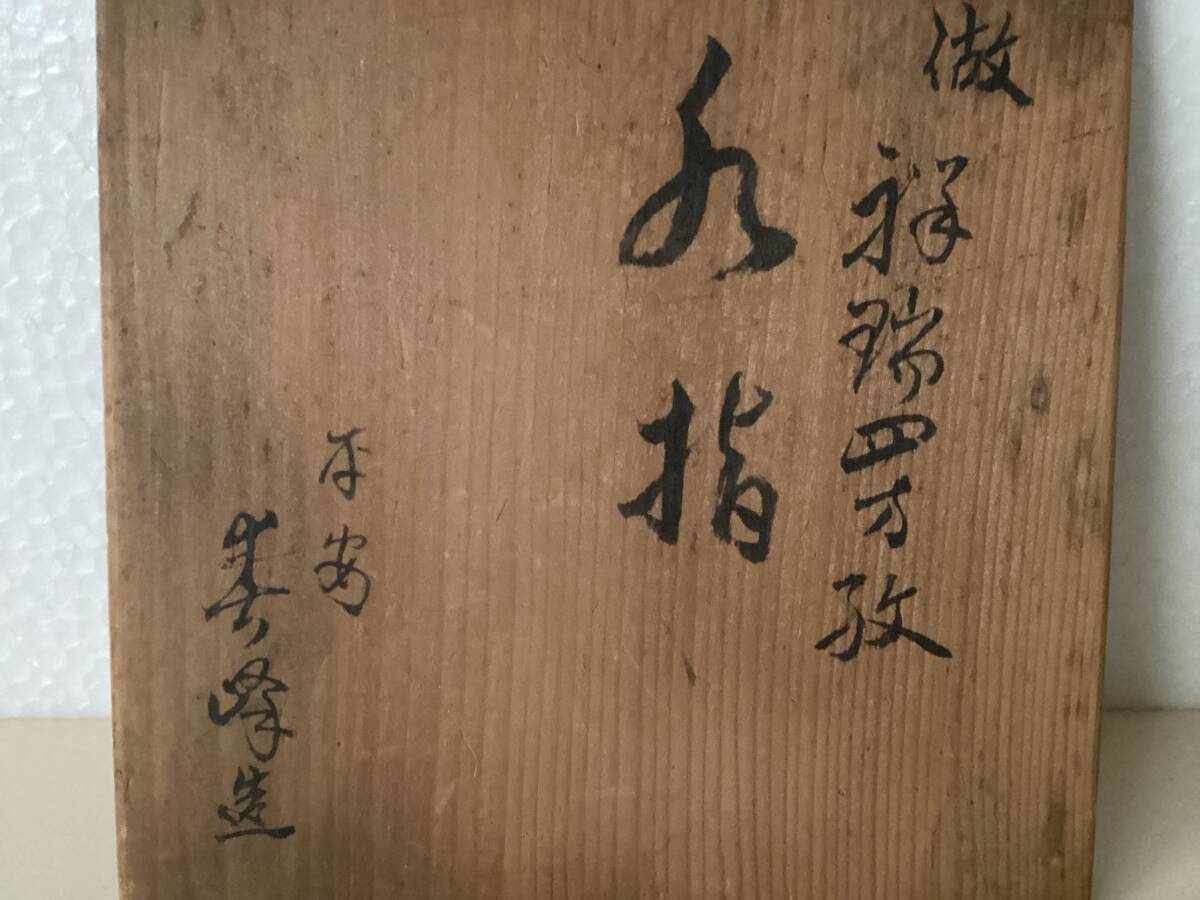 倣 祥瑞四方
水指
平安
春峰造